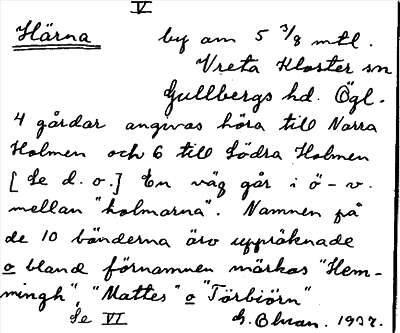 V
Härna by om 5 3/8 mtl.
Vreta Kloster sn
Gullbergs hd. Ögl.
4 gårdar angivas höra till Norra
Holmen och 6 till Södra Holmen
[Se d. o.] En väg går i ö - v.
mellan "holmarna". Namnen på
de 10 bönderna äro uppräknade
o bland förnamnen märkas "Hem-
mingh", "Mattes" o "Törbiörn"
Se VI 1937.